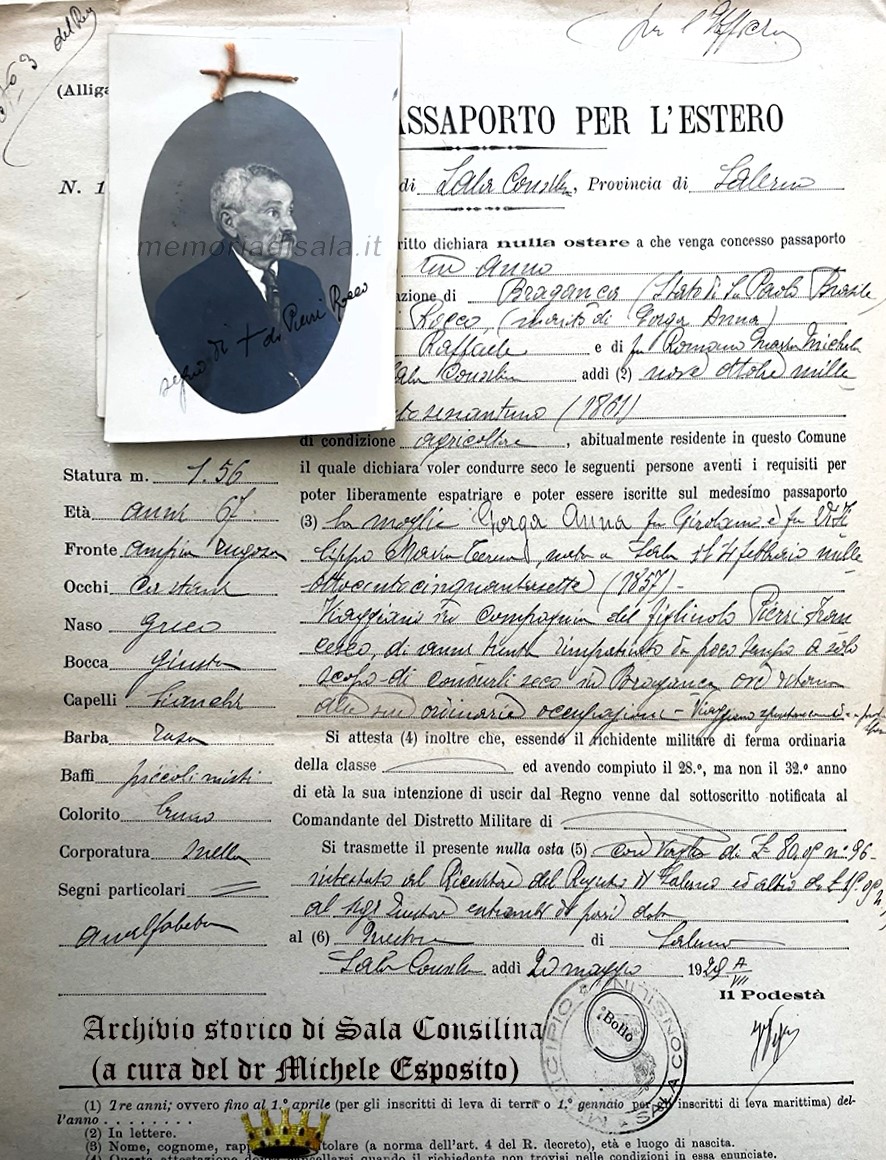 per l'Ufficio
del Re
(Alliga
ASSAPORTO PER L'ESTERO
N. 1
di Sala Consilina, Provincia di Salerno
ritto dichiara nulla ostare a che venga concesso passaporto
un anno
azione di Bragança (Stato di S. Paolo Brasile)
Rocco, (marito di Gorga Anna)
Raffaele e di fu Romano Maria Michela
Sala Consilina addì (2) nove ottobre mille
(1861)
memoriadisala.it
segno di + di Pierri Rocco
di condizione agricoltore, abitualmente residente in questo Comune
il quale dichiara voler condurre seco le seguenti persone aventi i requisiti per
poter liberamente espatriare e poter essere iscritte sul medesimo passaporto
(3) la moglie Gorga Anna fu Girolamo e fu
Maria Teresa, nata a Sala il 4 febbraio mille
ottocentocinquantasette (1857) -
Viaggiano in compagnia del figliuolo Pierri Fran
cesco, di anni trenta rimpatriato da poco tempo a solo
scopo di condurli seco in Bragança ove ritorna
alle sue ordinarie occupazioni - Viaggiano
Statura m. 1.56
Età anni 67
Fronte ampia rugosa
Occhi castani
Naso greco
Bocca giusta
Capelli bianchi
Barba rasa
Baffi piccoli misti
Colorito bruno
Corporatura snella
Segni particolari
analfabeta
Si attesta (4) inoltre che, essendo il richidente militare di ferma ordinaria
della classe ed avendo compiuto il 28.º, ma non il 32.º anno
di età la sua intenzione di uscir dal Regno venne dal sottoscritto notificata al
Comandante del Distretto Militare di
Si trasmette il presente nulla osta (5) con Vaglia di £ n° 96
intestato al Ricevitore del Registro di Salerno ed altro di £
al sig. Questore entrambi di pari data
al (6) Questore di Salerno
Sala Consilina addì 20 maggio 1929 A VII
Il Podestà
MUNICIPIO SALA CONSILINA
Bollo
Archivio storico di Sala Consilina
(a cura del dr Michele Esposito)
(1) Tre anni; ovvero fino al 1.º aprile (per gli inscritti di leva di terra o 1.º gennaio per gli inscritti di leva marittima) del-
l'anno . . . . . . . .
(2) In lettere.
(3) Nome, cognome, rapp titolare (a norma dell'art. 4 del R. decreto), età e luogo di nascita.
(4) Questa attestazione cancellarsi quando il richiedente non trovisi nelle condizioni in essa enunciate.